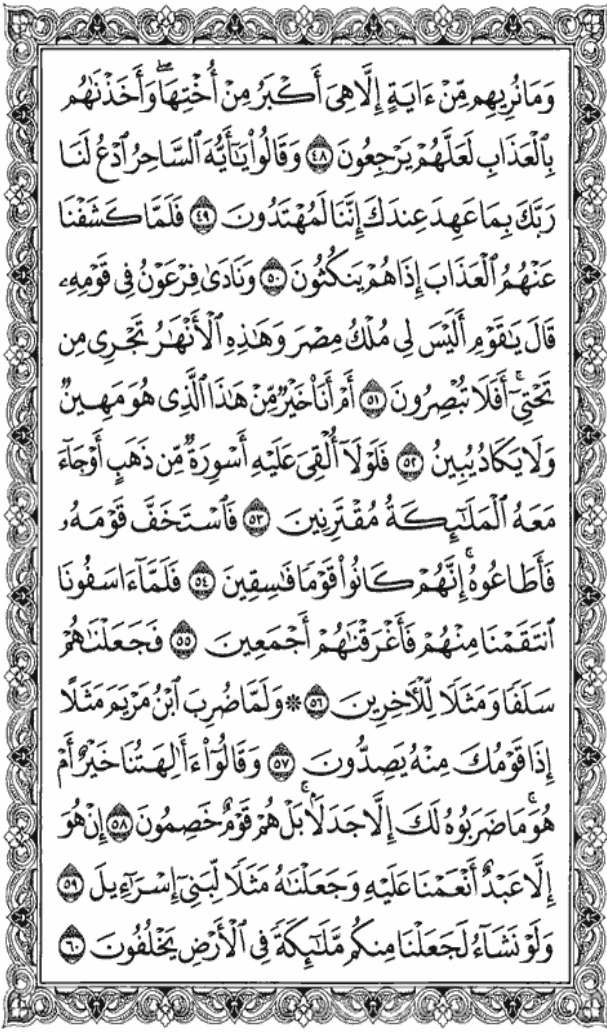 وَمَا نُرِيهِم مِّنْ ءَايَةٍ إِلَّا هِىَ أَكْبَرُ مِنْ أُخْتِهَا ۖ وَأَخَذْنَٰهُم
بِٱلْعَذَابِ لَعَلَّهُمْ يَرْجِعُونَ ٤٨ وَقَالُوا۟ يَٰٓأَيُّهَ ٱلسَّاحِرُ ٱدْعُ لَنَا
رَبَّكَ بِمَا عَهِدَ عِندَكَ إِنَّنَا لَمُهْتَدُونَ ٤٩ فَلَمَّا كَشَفْنَا
عَنْهُمُ ٱلْعَذَابَ إِذَا هُمْ يَنكُثُونَ ٥٠ وَنَادَىٰ فِرْعَوْنُ فِى قَوْمِهِۦ
قَالَ يَٰقَوْمِ أَلَيْسَ لِى مُلْكُ مِصْرَ وَهَٰذِهِ ٱلْأَنْهَٰرُ تَجْرِى مِن
تَحْتِىٓ ۖ أَفَلَا تُبْصِرُونَ ٥١ أَمْ أَنَا۠ خَيْرٌ مِّنْ هَٰذَا ٱلَّذِى هُوَ مَهِينٌ
وَلَا يَكَادُ يُبِينُ ٥٢ فَلَوْلَآ أُلْقِىَ عَلَيْهِ أَسْوِرَةٌ مِّن ذَهَبٍ أَوْ جَآءَ
مَعَهُ ٱلْمَلَٰٓئِكَةُ مُقْتَرِنِينَ ٥٣ فَٱسْتَخَفَّ قَوْمَهُۥ
فَأَطَاعُوهُ ۚ إِنَّهُمْ كَانُوا۟ قَوْمًا فَٰسِقِينَ ٥٤ فَلَمَّآ ءَاسَفُونَا
ٱنتَقَمْنَا مِنْهُمْ فَأَغْرَقْنَٰهُمْ أَجْمَعِينَ ٥٥ فَجَعَلْنَٰهُمْ
سَلَفًا وَمَثَلًا لِّلْءَاخِرِينَ ٥٦ ۞ وَلَمَّا ضُرِبَ ٱبْنُ مَرْيَمَ مَثَلًا
إِذَا قَوْمُكَ مِنْهُ يَصِدُّونَ ٥٧ وَقَالُوٓا۟ ءَأَٰلِهَتُنَا خَيْرٌ أَمْ
هُوَ ۚ مَا ضَرَبُوهُ لَكَ إِلَّا جَدَلًۢا ۚ بَلْ هُمْ قَوْمٌ خَصِمُونَ ٥٨ إِنْ هُوَ
إِلَّا عَبْدٌ أَنْعَمْنَا عَلَيْهِ وَجَعَلْنَٰهُ مَثَلًا لِّبَنِىٓ إِسْرَٰٓءِيلَ ٥٩
وَلَوْ نَشَآءُ لَجَعَلْنَا مِنكُم مَّلَٰٓئِكَةً فِى ٱلْأَرْضِ يَخْلُفُونَ ٦٠